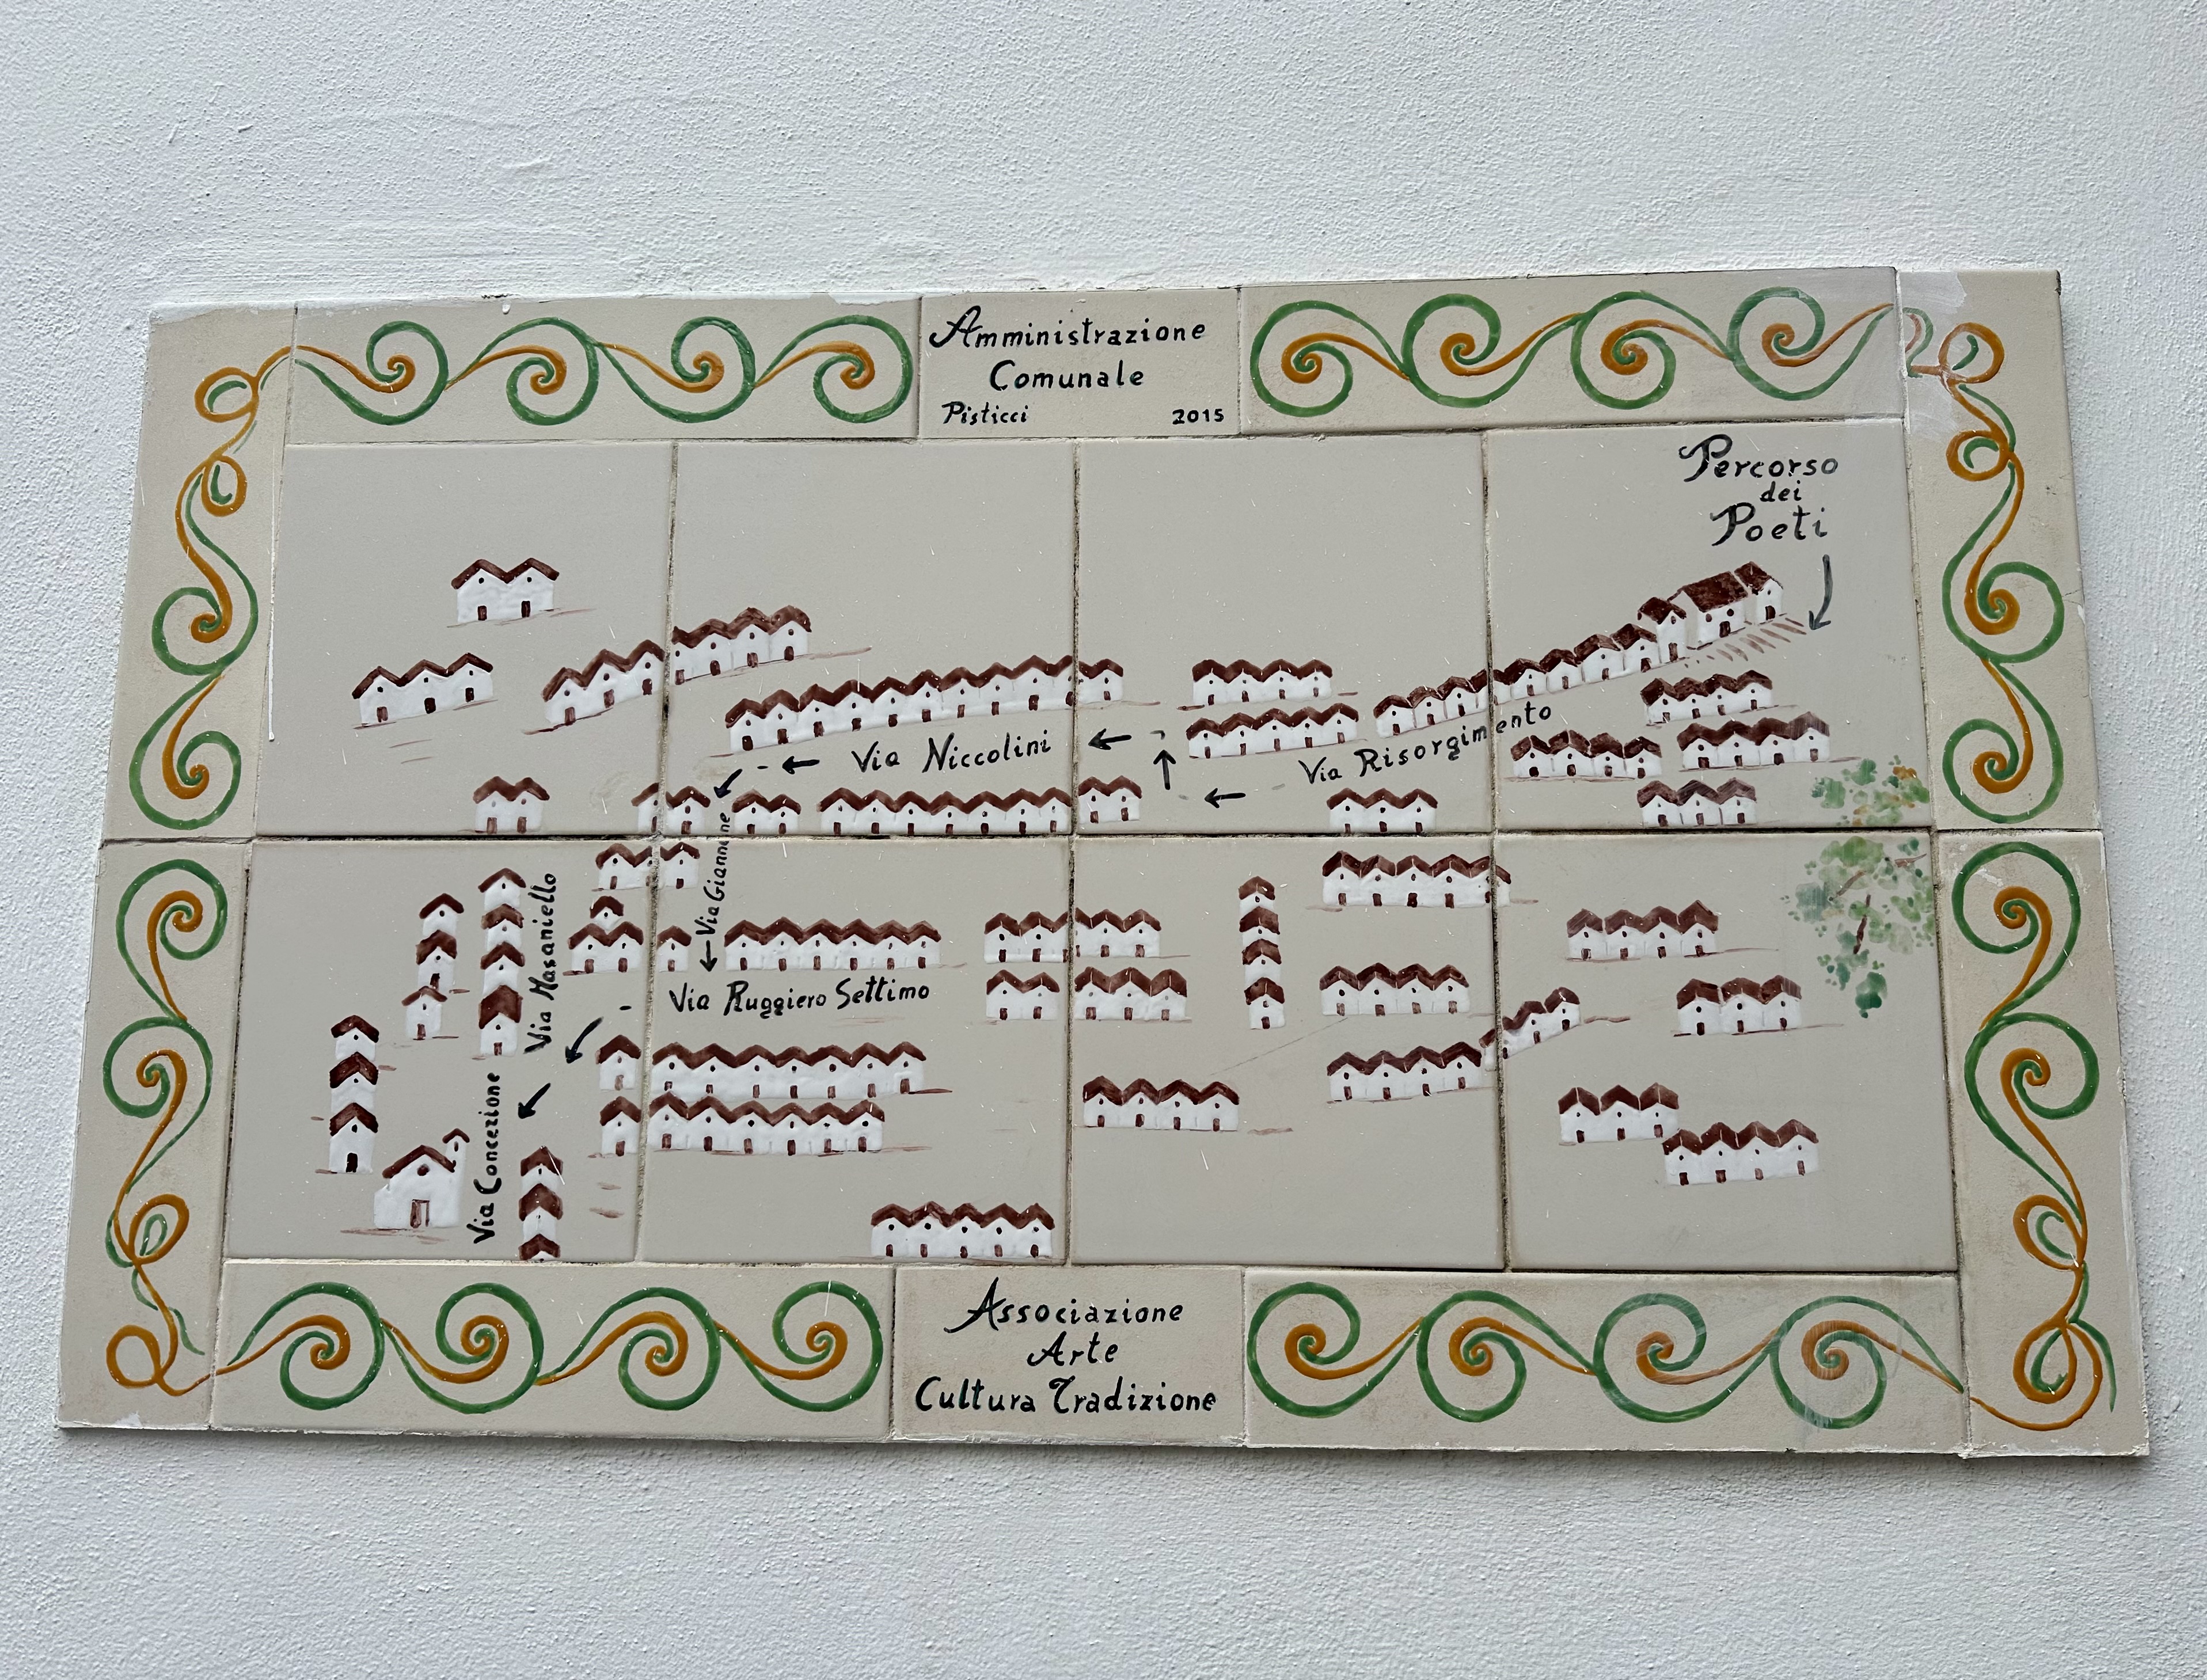 Amministrazione
Comunale
Pisticci 2015
Percorso
dei
Poeti
Via Risorgimento
Via Niccolini
Via Giannone
Via Ruggiero Settimo
Via Masaniello
Via Concezione
Associazione
Arte
Cultura Tradizione